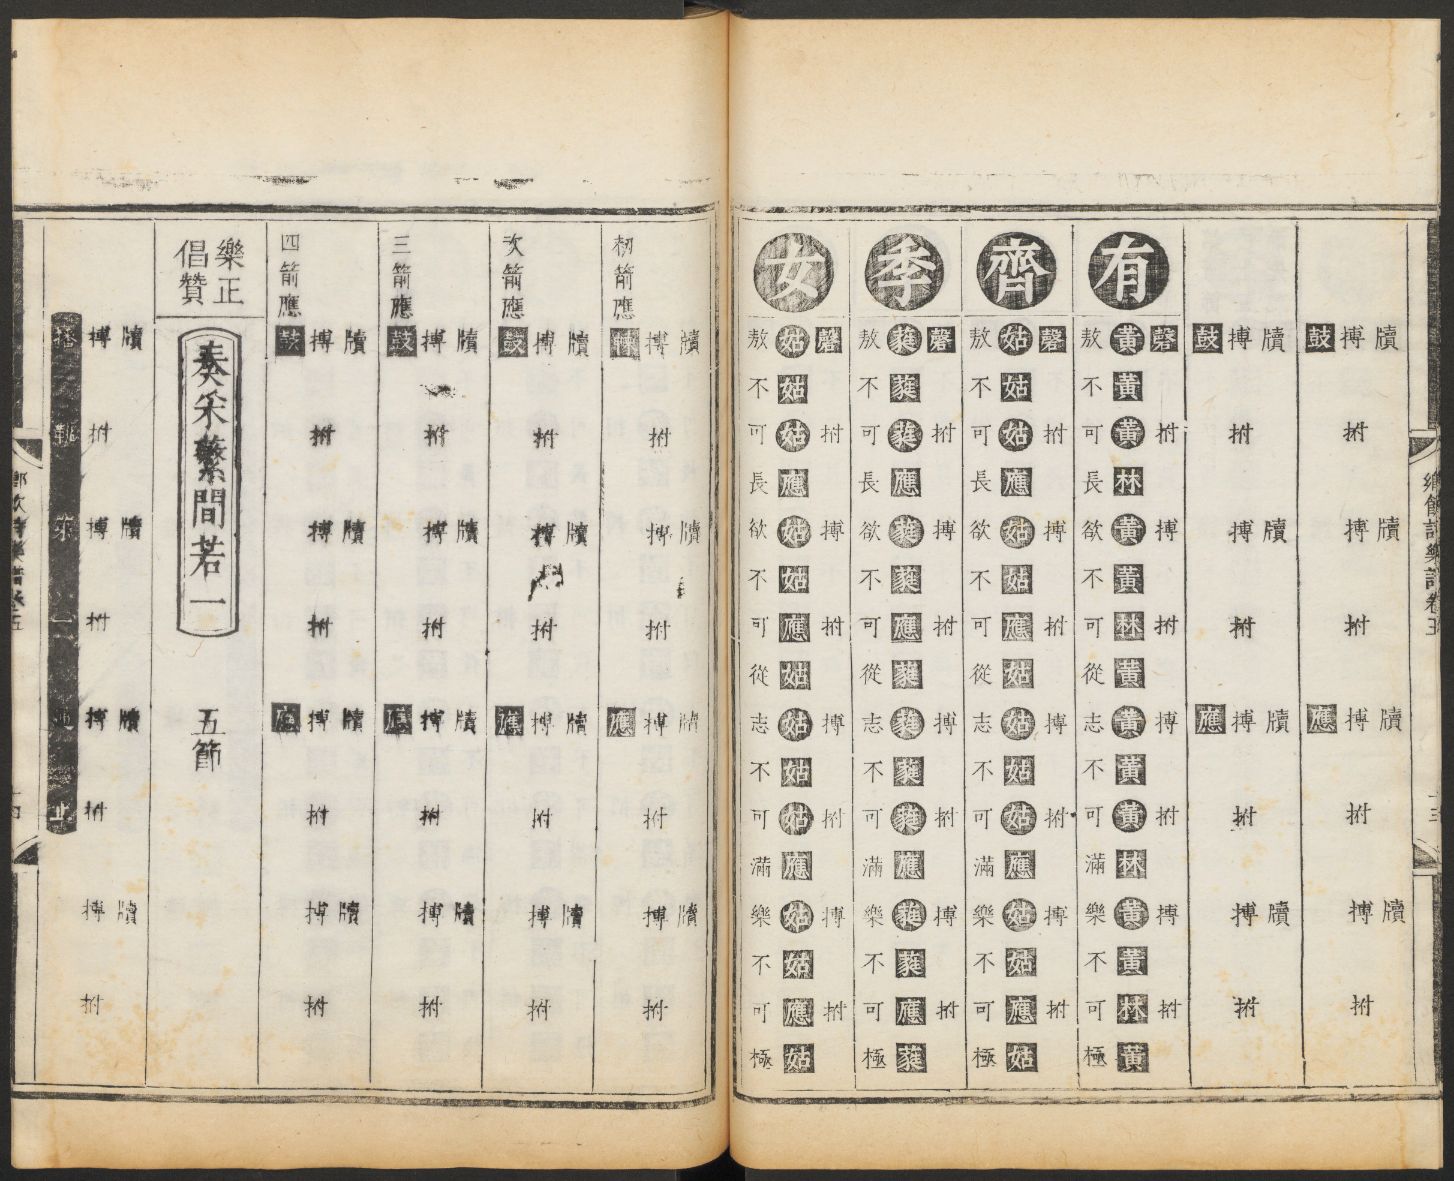 鄉飲詩樂譜卷五
十三
牘牘牘牘
搏拊搏拊搏拊搏拊
鼓應
牘牘牘牘
搏拊搏拊搏拊搏拊
鼓應
有
磬拊搏拊搏拊搏拊
黃黃黃林黃黃林黃黃黃黃林黃黃林黃
敖不可長欲不可從志不可滿樂不可極
齊
磬拊搏拊搏拊搏拊
姑姑姑應姑姑應姑姑姑姑應姑姑應姑
敖不可長欲不可從志不可滿樂不可極
季
磬拊搏拊搏拊搏拊
蕤蕤蕤應蕤蕤應蕤蕤蕤蕤應蕤蕤應蕤
敖不可長欲不可從志不可滿樂不可極
女
磬拊搏拊搏拊搏拊
姑姑姑應姑姑應姑姑姑姑應姑姑應姑
敖不可長欲不可從志不可滿樂不可極
初箭應
牘牘牘牘
搏拊搏拊搏拊搏拊
應
次箭應
牘牘牘牘
搏拊搏拊搏拊搏拊
鼓應
三箭應
牘牘牘牘
搏拊搏拊搏拊搏拊
鼓應
四箭應
牘牘牘牘
搏拊搏拊搏拊搏拊
鼓應
樂正
倡贊
奏采蘩間若一
五節
牘牘牘牘
搏拊搏拊搏拊搏拊
一通止
鄉飲詩樂譜卷五
十四